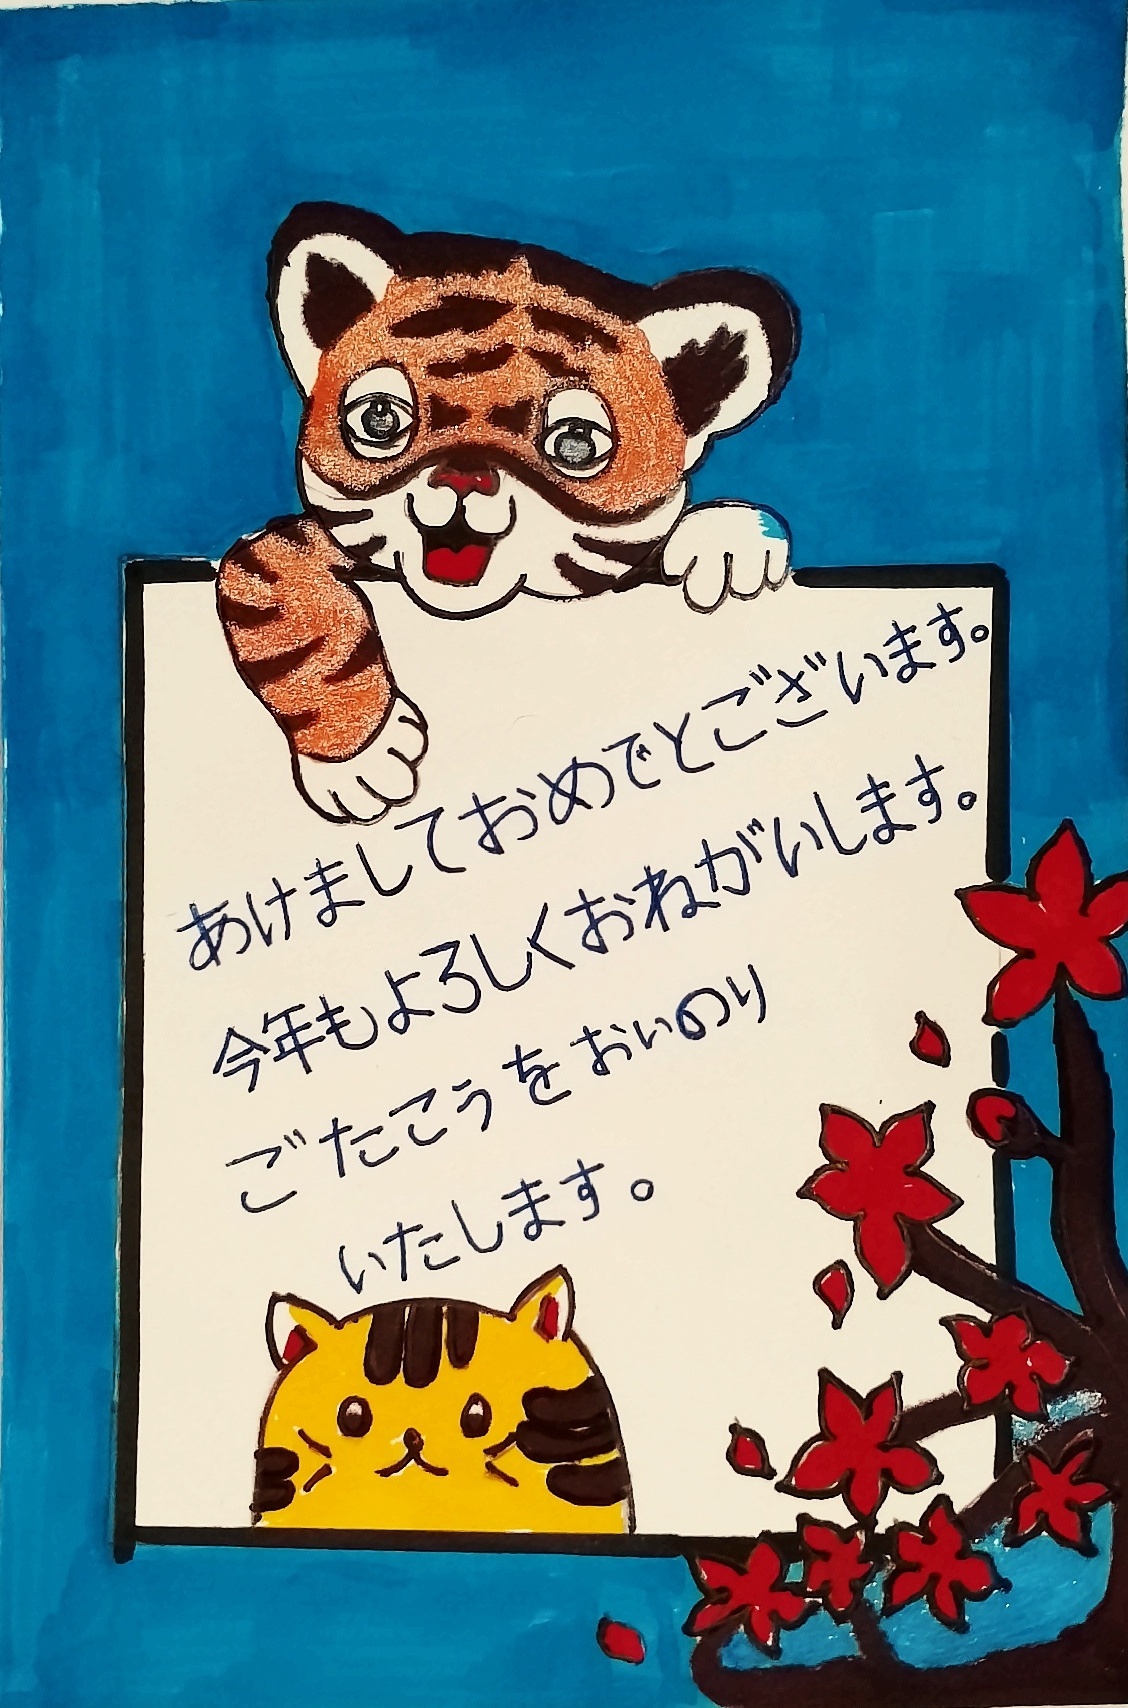 あけましておめでとございます。
今年もよろしくおねがいします。
ごたこうをおいのり
いたします。